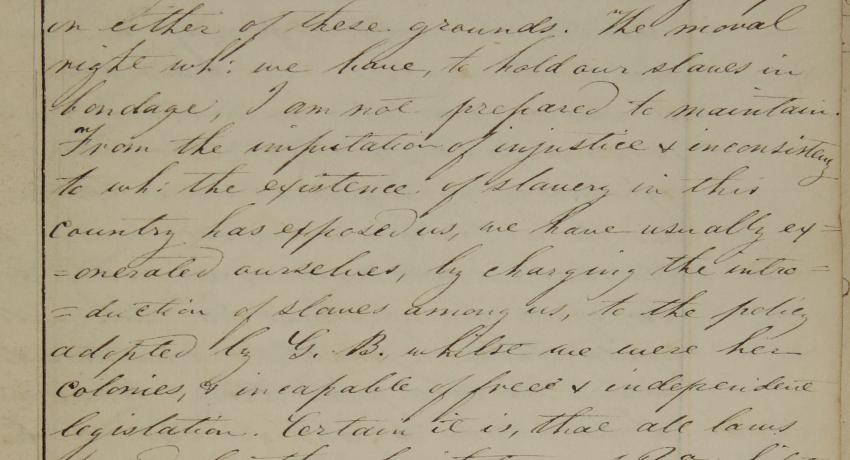 in either of these grounds. The moral
right wh: we have, to hold our slaves in
bondage, I am not prepared to maintain.
From the imputation of injustice & inconsistency
to wh: the existence of slavery in this
country has exposed us, we have usually ex=
=onerated ourselves, by charging the intro=
=duction of slaves among us, to the policy
adopted by G. B. whilst we were her
colonies, & incapable of free & independent
legislation. Certain it is, that all laws